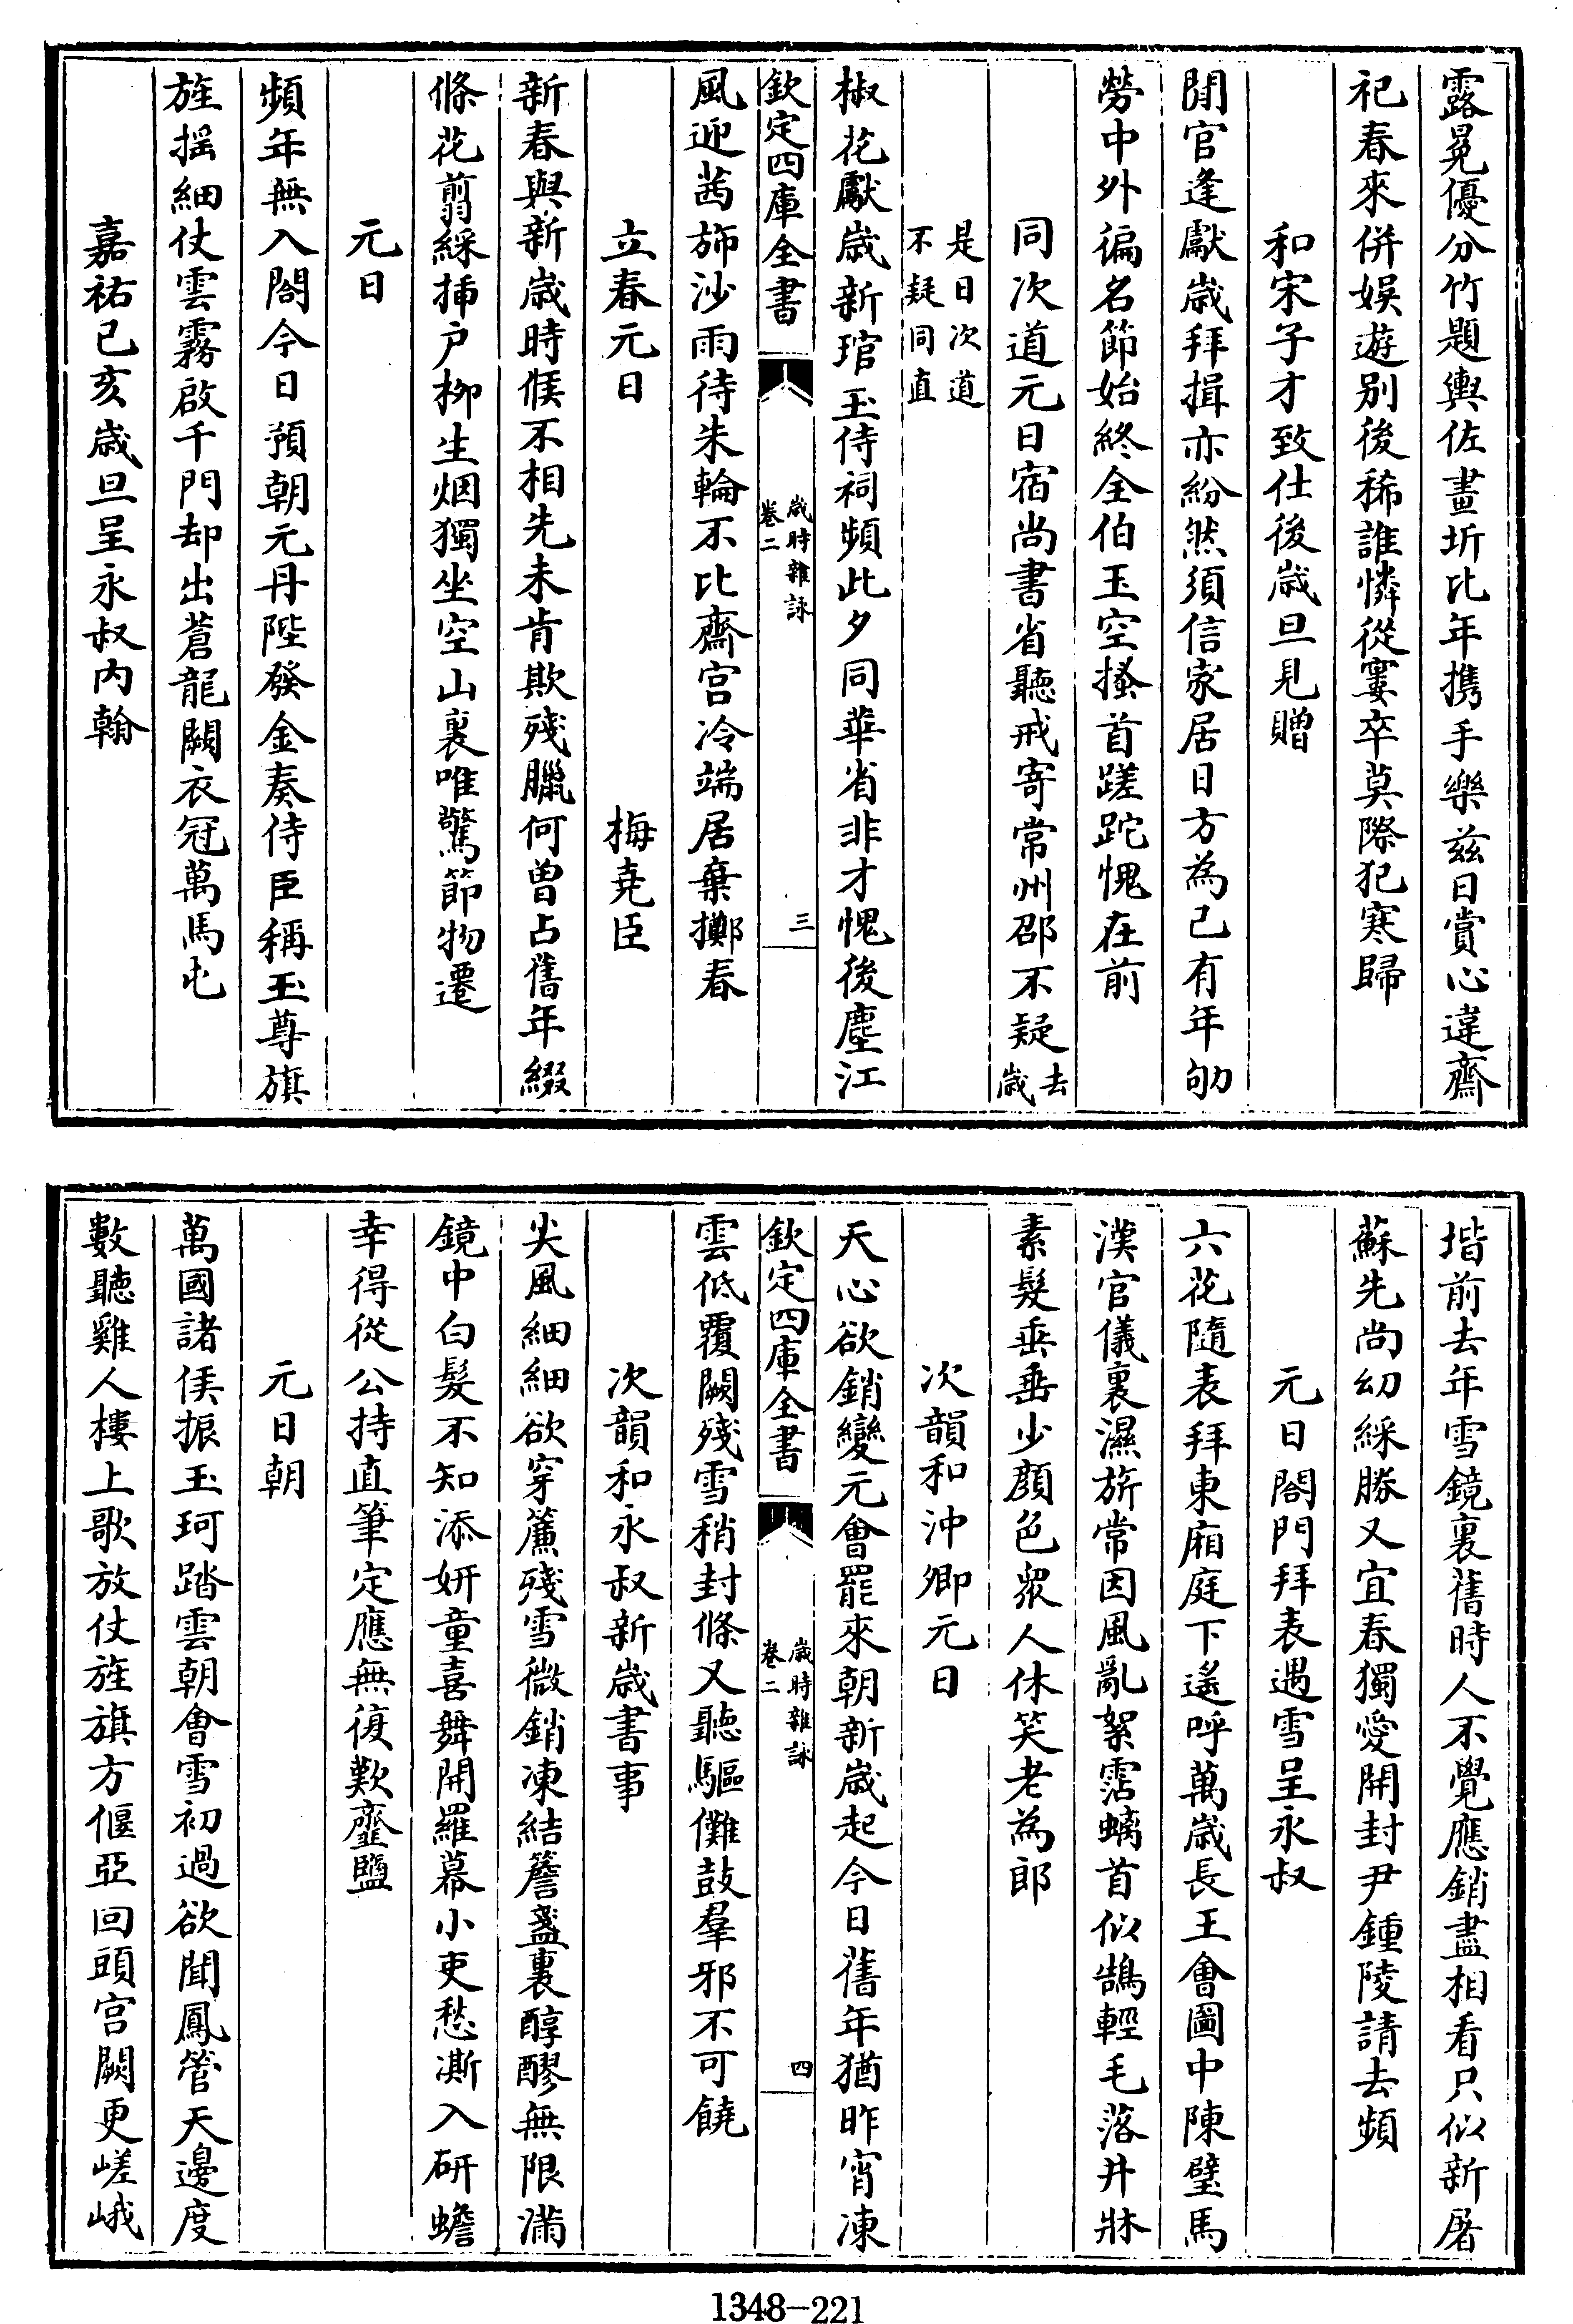 露冕優分竹題輿佐畫圻比年携手樂兹日賞心違齋
祀春來併娛遊别後稀誰憐從寠卒莫際犯寒歸
和宋子才致仕後歲旦見贈
閒官逢獻歲拜揖亦紛然須信家居日方為己有年劬
勞中外徧名節始終全伯玉空搔首蹉跎愧在前
同次道元日宿尚書省聽戒寄常州邵不疑去歲
是日次道
不疑同直
椒花獻歲新琯玉侍祠頻此夕同華省非才愧後塵江
欽定四庫全書
歲時雜詠
卷二
三
風迎茜斾沙雨待朱輪不比齋宫冷端居棄擲春
立春元日 梅堯臣
新春與新歲時候不相先未肯欺殘臘何曾占舊年綴
條花翦綵揷户柳生烟獨坐空山裏唯驚節物遷
元日
頻年無入閤今日預朝元丹陛發金奏侍臣稱玉尊旗
旌揺細仗雲霧啟千門却出蒼龍闕衣冠萬馬屯
嘉祐已亥歲旦呈永叔内翰
堦前去年雪鏡裏舊時人不覺應銷盡相看只似新屠
蘇先尚幼綵勝又宜春獨愛開封尹鍾陵請去頻
元日閤門拜表遇雪呈永叔
六花隨表拜東廂庭下遙呼萬歲長王會圖中陳璧馬
漢官儀裏濕旂常因風亂絮霑螭首似鵠輕毛落井牀
素髮垂垂少顔色衆人休笑老為郎
次韻和沖卿元日
天心欲銷變元會罷來朝新歲起今日舊年猶昨宵凍
欽定四庫全書
歲時雜詠
卷二
四
雲低覆闕殘雪稍封條又聽驅儺鼓羣邪不可饒
次韻和永叔新歲書事
尖風細細欲穿簾殘雪微銷凍結簷盞裏醇醪無限滿
鏡中白髮不知添妍童喜舞開羅幕小吏愁澌入硏蟾
幸得從公持直筆定應無復歎虀鹽
元日朝
萬國諸侯振玉珂踏雲朝會雪初過欲聞鳳管天邊度
數聽雞人樓上歌放仗旌旗方偃亞回頭宫闕更嵯峨
1348-221